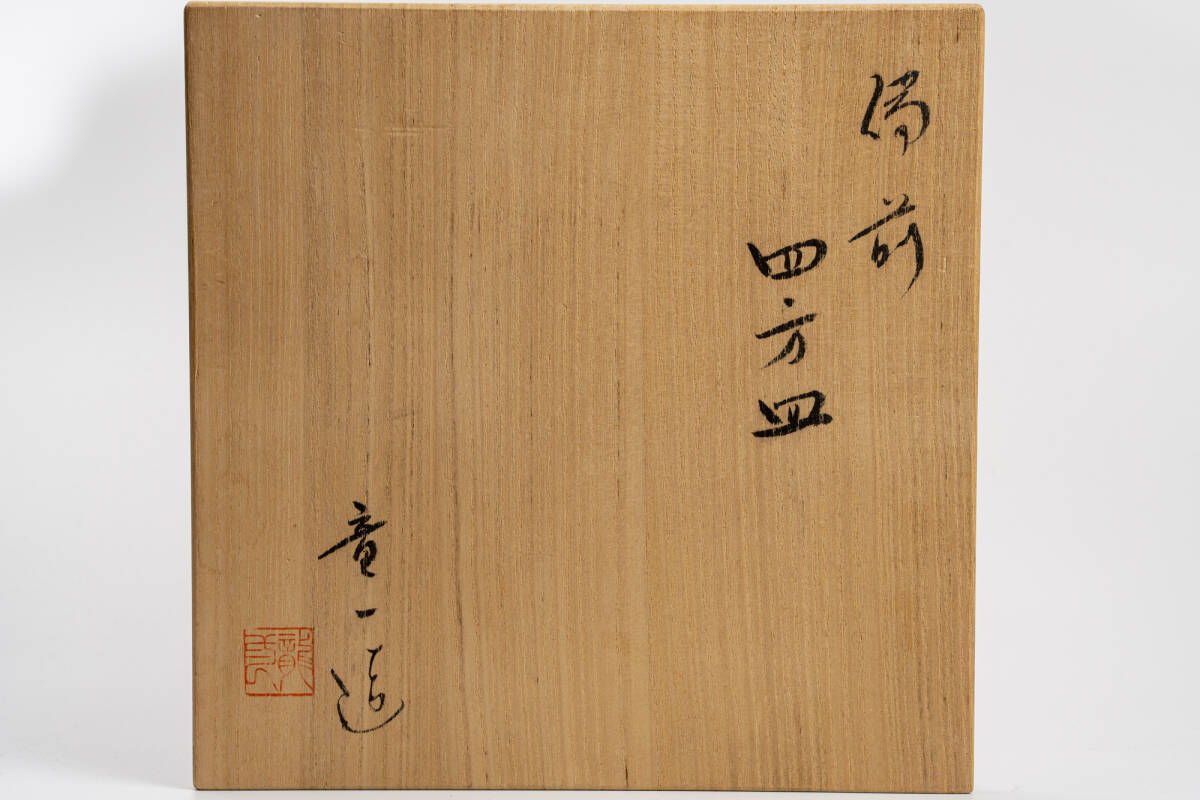 備前
四方皿
竜一造